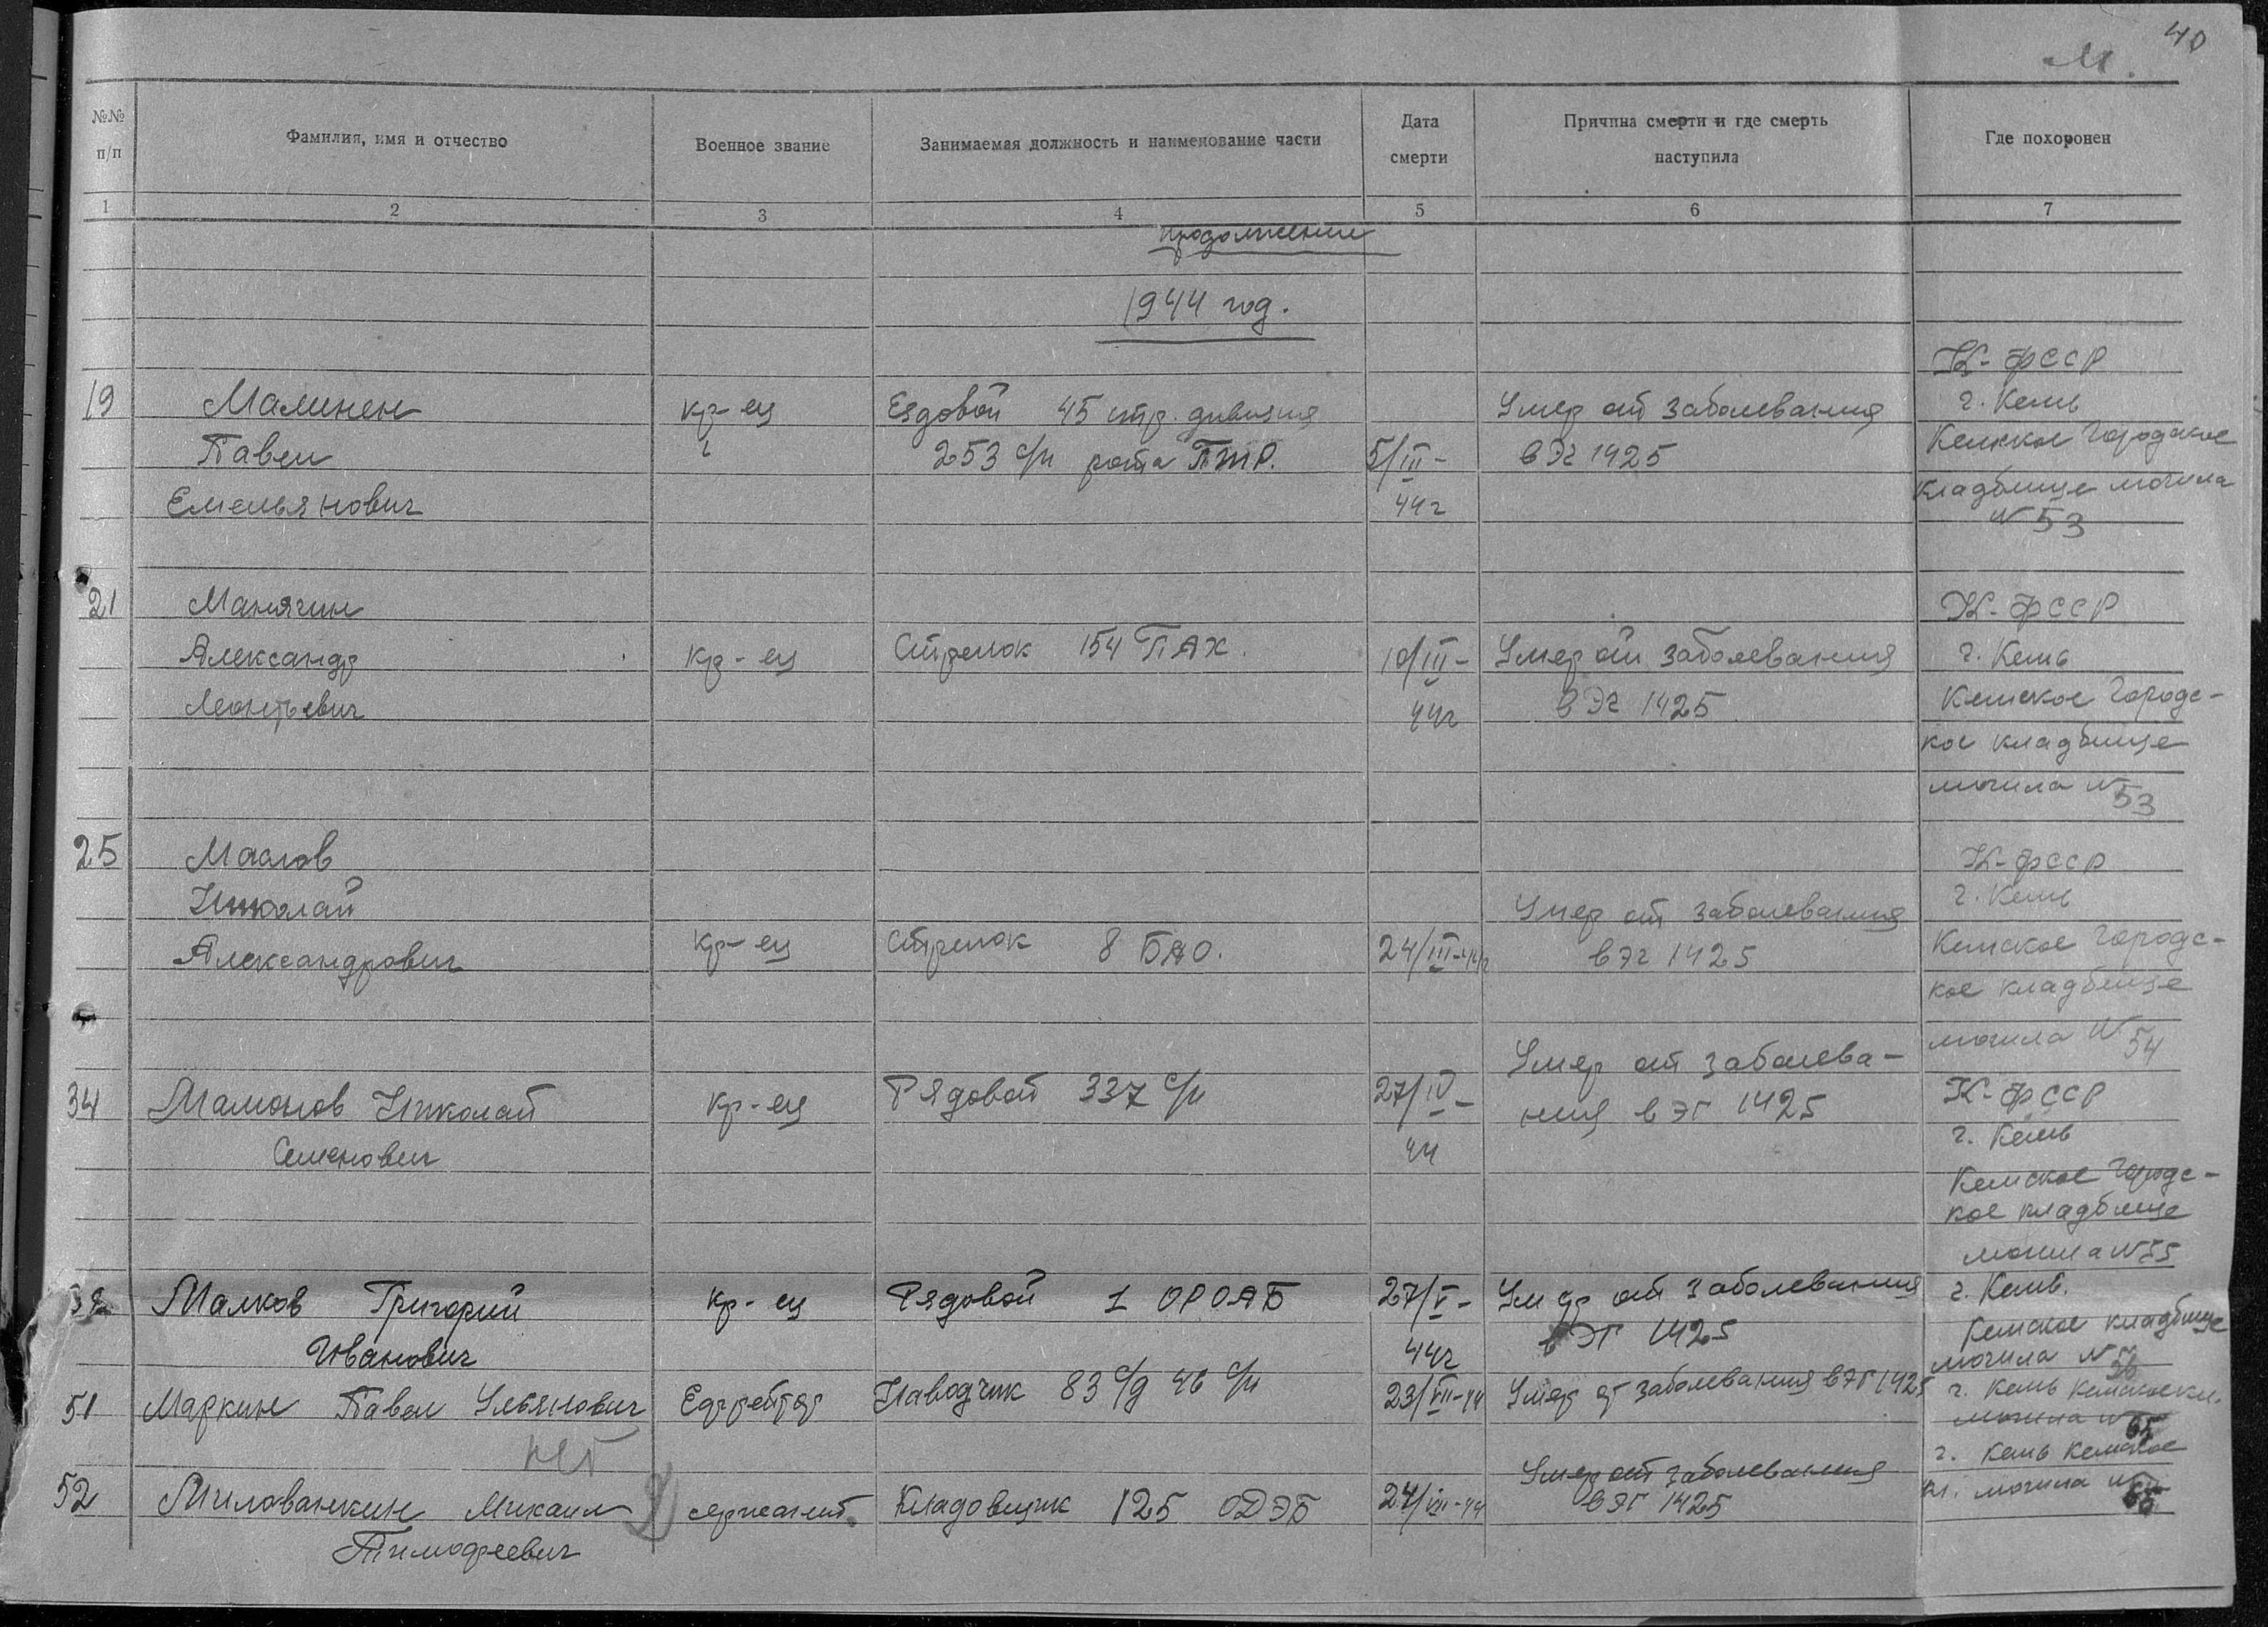 40
М.
№№ п/п
Фамилия, имя и отчество
Военное звание
Занимаемая должность и наименование части
Дата смерти
Причина смерти и где смерть наступила
Где похоронен
1 2 3 4 5 6 7
продолжение
1944 год.
К-ФССР
19 Малинен кр-ец Ездовой 45 стр. дивизия Умер от заболевания г. Кемь
Павел 253 с/п рота ПТР. 5/III- в ЭГ 1425 Кемское городское
Емельянович 44г кладбище могила
N 53
21 Манячин К-ФССР
Александр кр-ец Стрелок 154 ПАХ. 10/III- Умер от заболевания г. Кемь
Леонтьевич 44г в ЭГ 1425 Кемское городс-
кое кладбище
могила N 53
25 Маслов К-ФССР
Николай Умер от заболевания г. Кемь
Александрович кр-ец стрелок 8 БАО. 24/III-44г в ЭГ 1425 Кемское городс-
кое кладбище
могила N 54
Умер от заболева-
34 Мамонов Николай кр-ец Рядовой 337 с/п 27/IV- ния в ЭГ 1425 К-ФССР
Семенович 44 г. Кемь
Кемское городс-
кое кладбище
могила N 55
Малков Григорий кр-ец Рядовой 1 ОРОАБ 27/V- Умер от заболевания г. Кемь.
Иванович 44г в ЭГ 1425 Кемское кладбище
могила N 56
51 Маркин Павел Ульянович Ефрейтор Наводчик 83 с/д 46 с/п 23/VII-44 Умер от заболевания в ЭГ 1425 г. Кемь Кемское кл.
могила N
нет
52 Милованкин Михаил сержант Кладовщик 125 ОДЭБ 24/VII-44 Умер от заболевания г. Кемь Кемское
Тимофеевич в ЭГ 1425 кл. могила N